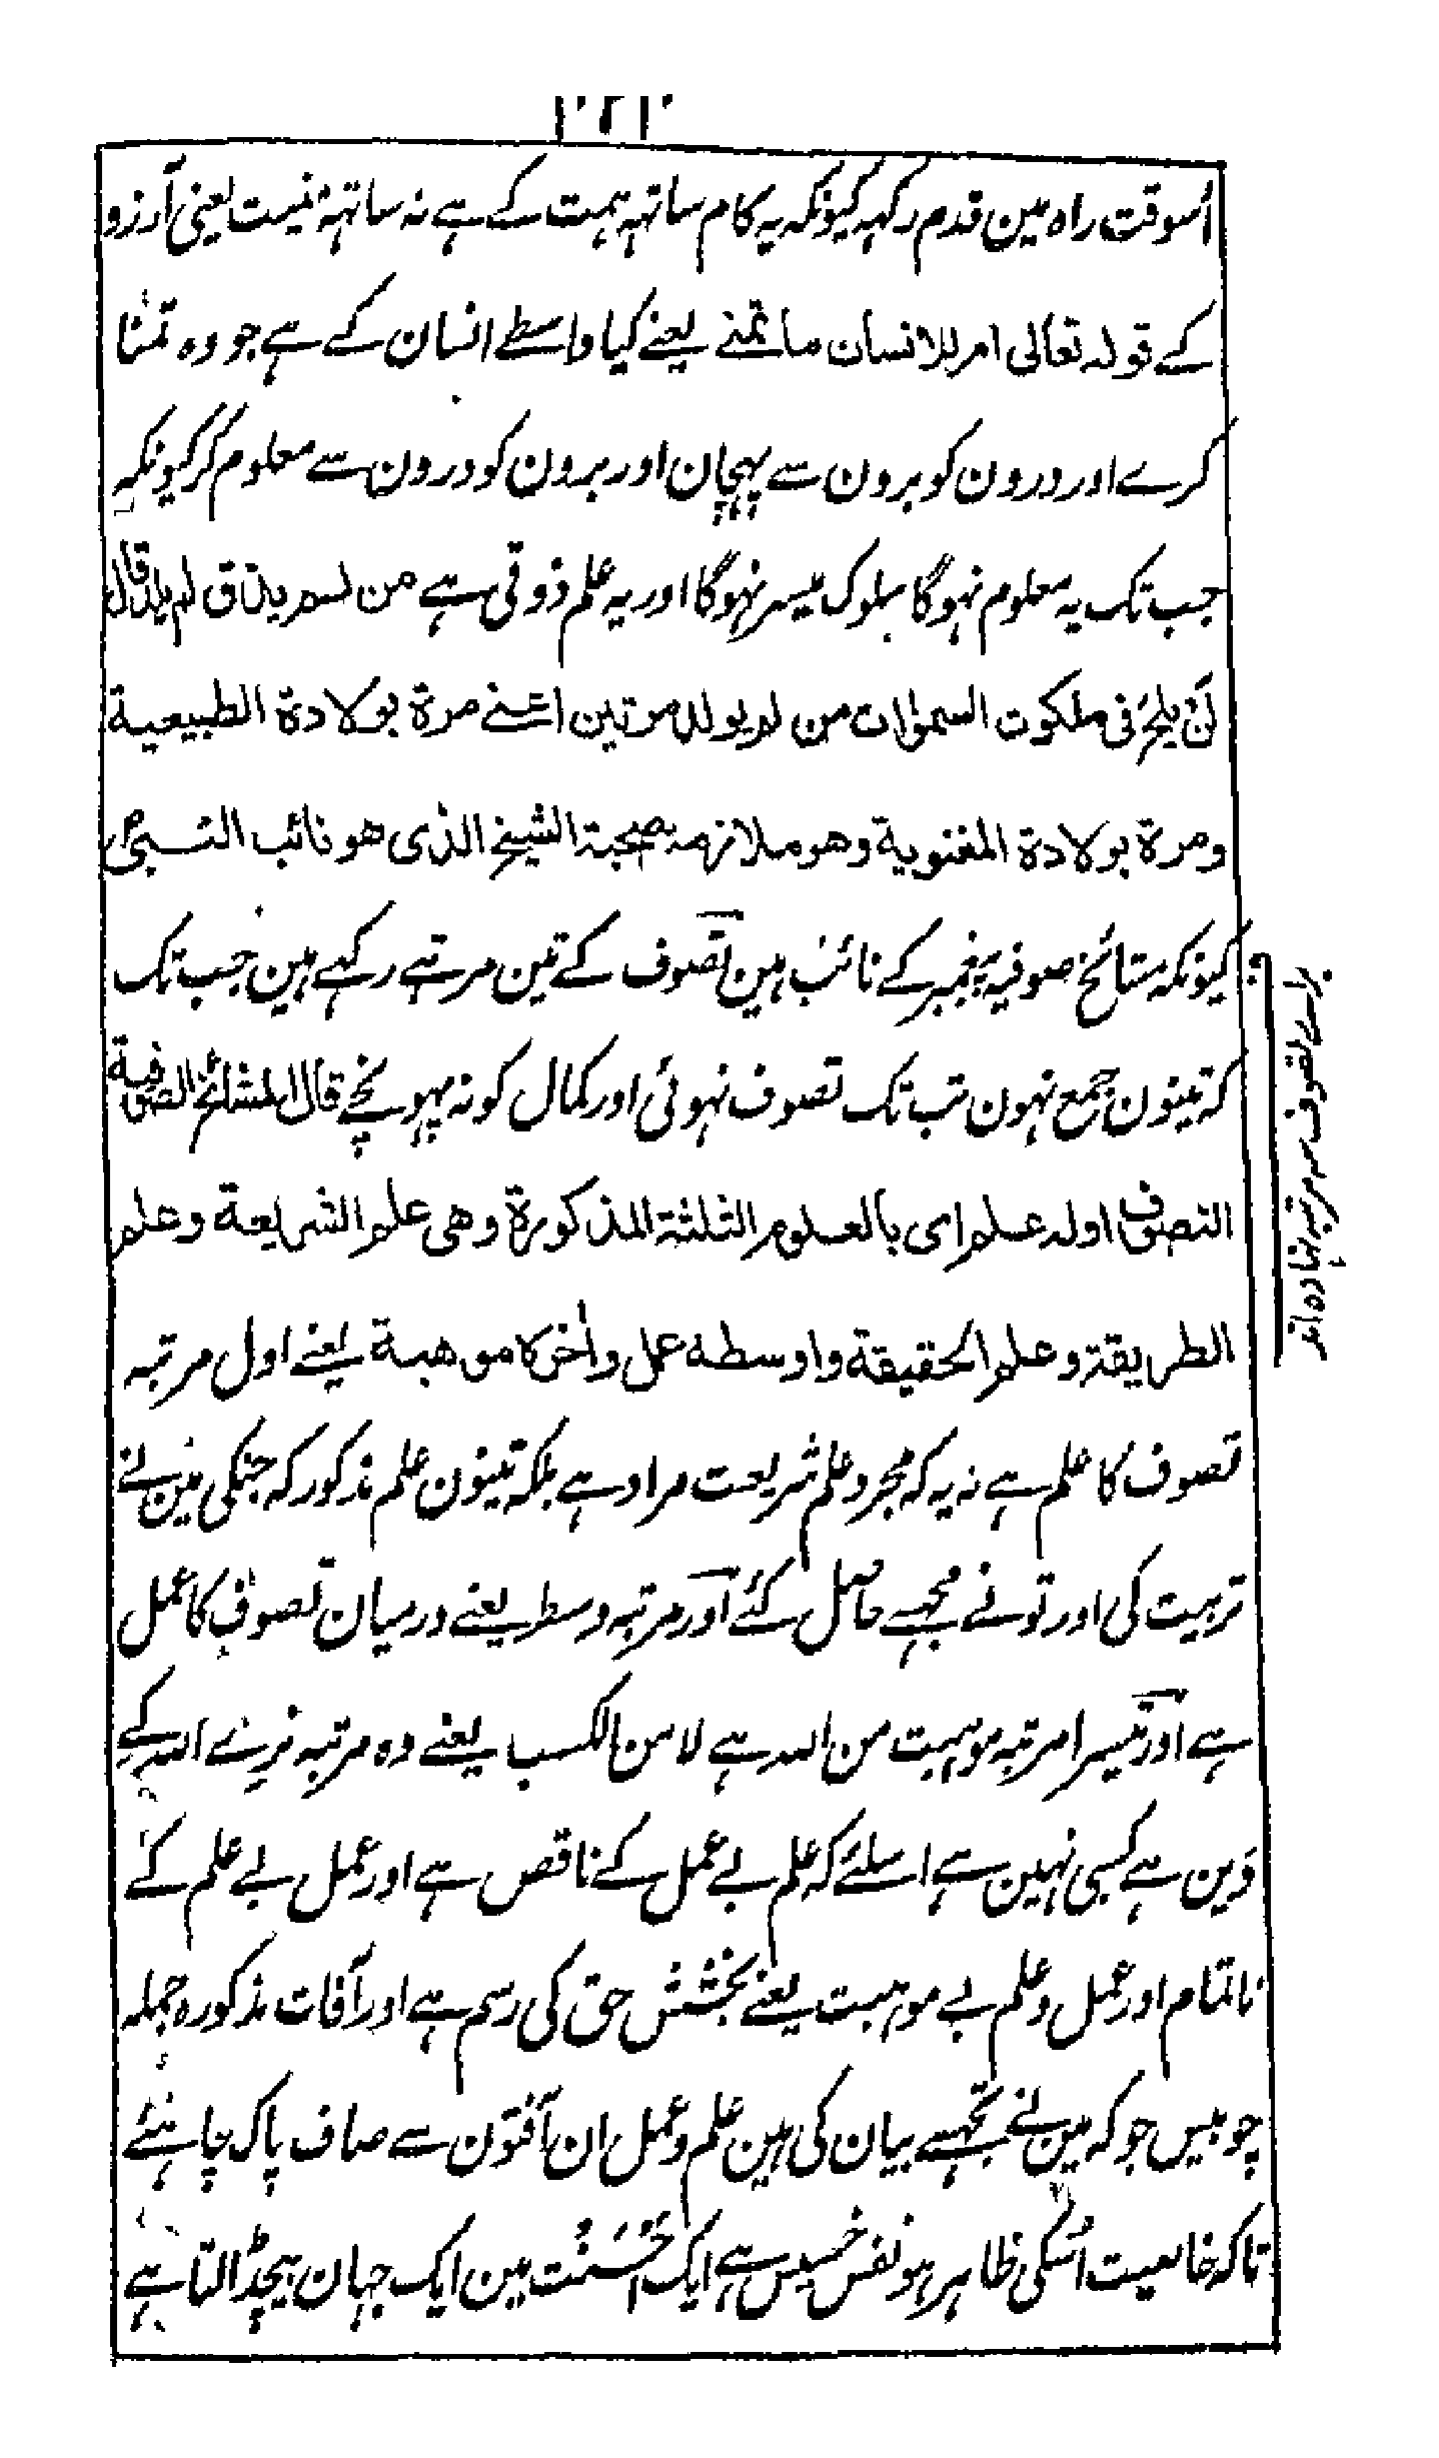 ۱۰۲۱۰
اُسوقت راہ مین قدم رکہہ کیونکہ یہ کام ساتہہ ہمت کے ہے نہ ساتہہ منیت یعنی آرزو
کے قولہ تعالی ام للانسان ما تمنے یعنے کیا واسطے انسان کے ہے جو وہ تمنا
کرے اور درون کو برون سے پہچان اور برون کو درون سے معلوم کر کیونکہ
جب تک یہ معلوم نہوگا سلوک میسر نہوگا اور یہ علم ذوقی ہے من لم یذق لم یدر قال
لن یلج فی ملکوت السموات من لم یولد مرتین اعنے مرۃ بولادۃ الطبیعیۃ
ومرۃ بولادۃ المعنویۃ وھو ملازمۃ صحبۃ الشیخ الذی ھو نائب النبی
کیونکہ مشائخ صوفیہ پیغمبر کے نائب ہین تصوف کے تین مرتبے رکہے ہین جب تک
کہ تینون جمع نہون تب تک تصوف نہوئی اور کمال کو نہ پہونچے قال المشائخ الصوفیۃ
التصوف اولہ علم ای بالعلوم الثلثۃ المذکورۃ وھی علم الشریعۃ وعلم
الطریقۃ وعلم الحقیقۃ واوسطہ عمل واٰخرہ موھبۃ یعنے اول مرتبہ
تصوف کا علم ہے نہ یہ کہ مجرد علم شریعت مراد ہے بلکہ تینون علم مذکور کہ جنکی مین نے
تربیت کی اور تونے مجہسے حاصل کئے اور مرتبہ وسط یعنے درمیان تصوف کا عمل
ہے اور تیسرا مرتبہ موہبت من اللہ ہے لا من الکسب یعنے وہ مرتبہ نرے اللہ کے
دین ہے کسبی نہین ہے اسلئے کہ علم بے عمل کے ناقص ہے اور عمل بے علم کے
ناتمام اور عمل و علم بے موہبت یعنے بخشش حق کی رسم ہے اور آفات مذکورہ جملہ
چوبیس جو کہ مین نے تجہسے بیان کی ہین علم و عمل ان آفتون سے صاف پاک چاہئے
تاکہ خاصیت اُسکی ظاہر ہو نفس خسیس ہے ایک اَحسَنتَ مین ایک جہان بیچڈالتا ہے
براے تصوف سہ مرتبہ نہادہ اند